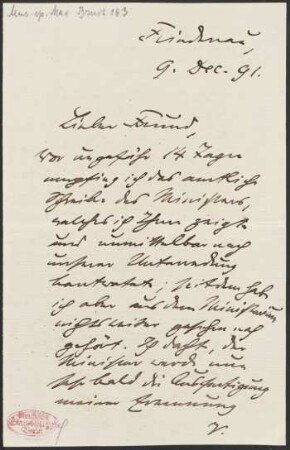 Mus. ep. Max Bruch 163
Friedenau,
9. Dec. 91.
Lieber Freund,
vor ungefähr 14 Tagen
empfing ich das amtliche
Schreiben des Ministers,
welches ich Ihnen zeigte
und unmittelbar nach
unserer Unterredung
beantwortete; seitdem habe
ich aber aus dem Ministerium
nichts weiter gesehen noch
gehört. Ich dachte, der
Minister werde nun
sehr bald die Ausfertigung
meiner Ernennung